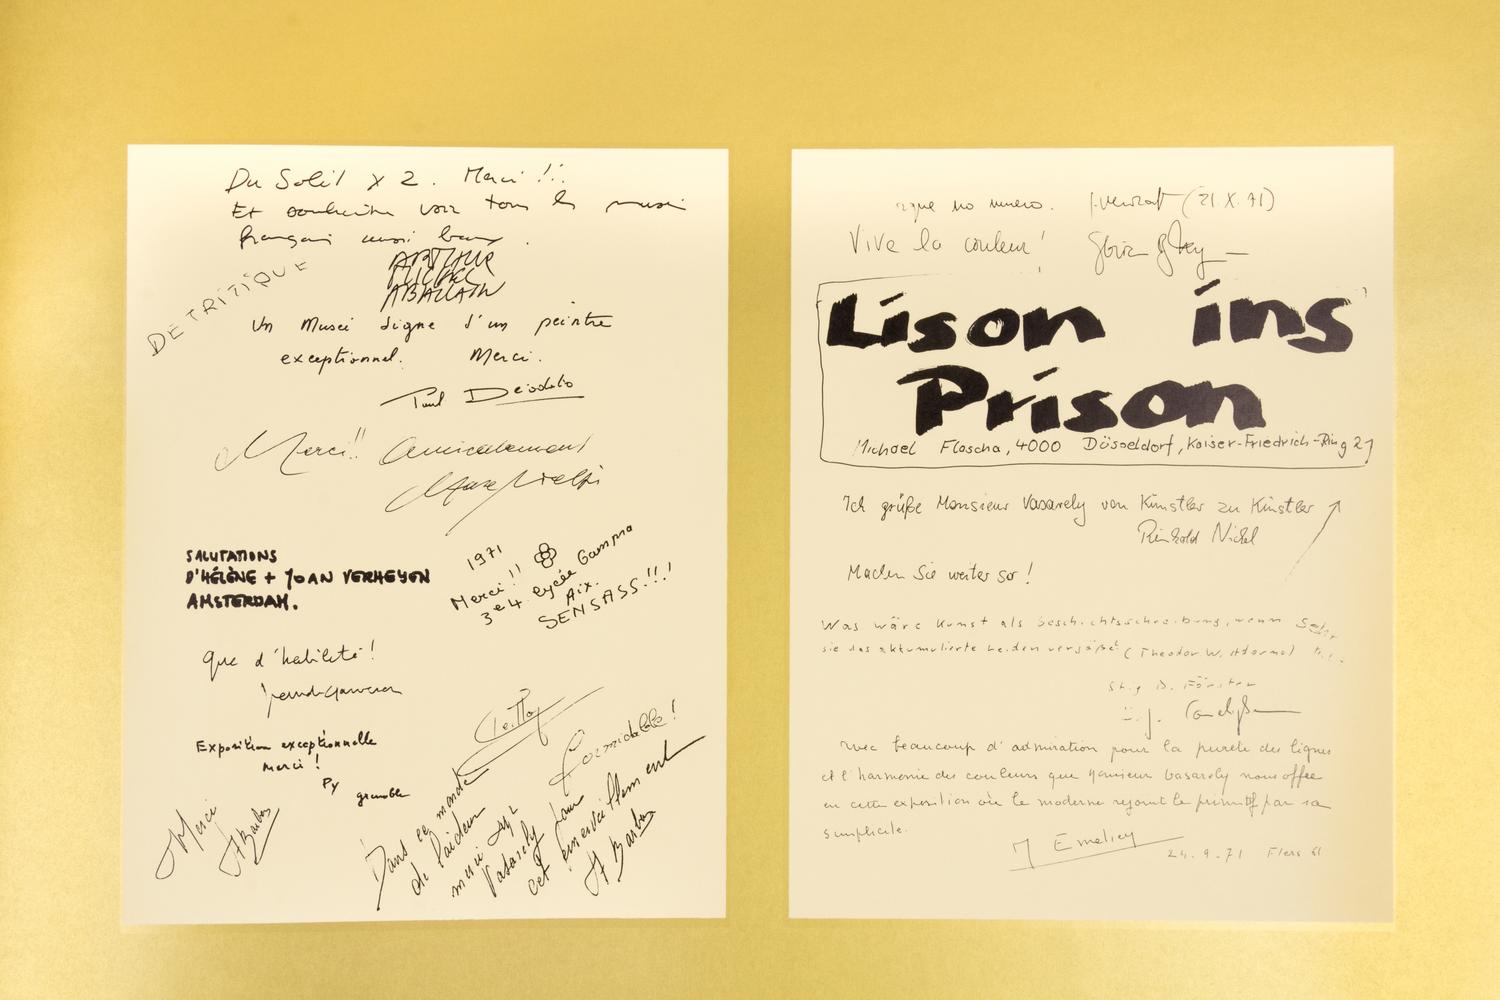 Du Soleil x 2. Merci !!.
Et souhaite voir tous les musées
français aussi beaux.
DETRITIQUE
ARTHUR
MICHEL
ABALLAIN
Un Musée digne d'un peintre
exceptionnel. Merci.
Paul
Merci!! Amicalement
SALUTATIONS
D'HÉLÈNE + YOAN VERHEYEN
AMSTERDAM.
1971
Merci !!
3e4 Lycée Gampra
Aix.
SENSASS!!!
que d'habileté!
Exposition exceptionnelle
merci !
Py
grenoble
Merci
A Barbes
Formidable!
Dans ce monde
de laideur
merci
Vasarely pour
cet émerveillement
A Barbes
Vive la couleur!
(21.X.71)
Lison ins
Prison
Michael Floscha, 4000 Düsseldorf, Kaiser-Friedrich-Ring 27
Ich grüße Monsieur Vasarely von Künstler zu Künstler
Reinhold Nickel
Machen Sie weiter so!
Was wäre Kunst als Geschichtsschreibung, wenn
sie das akkumulierte Leiden vergäße (Theodor W. Adorno)
Avec beaucoup d'admiration pour la pureté des lignes
et l'harmonie des couleurs que Monsieur Vasarely nous offre
en cette exposition où le moderne rejoint le primitif par sa
simplicité.
J Emeliey
24.9.71 Flers 61